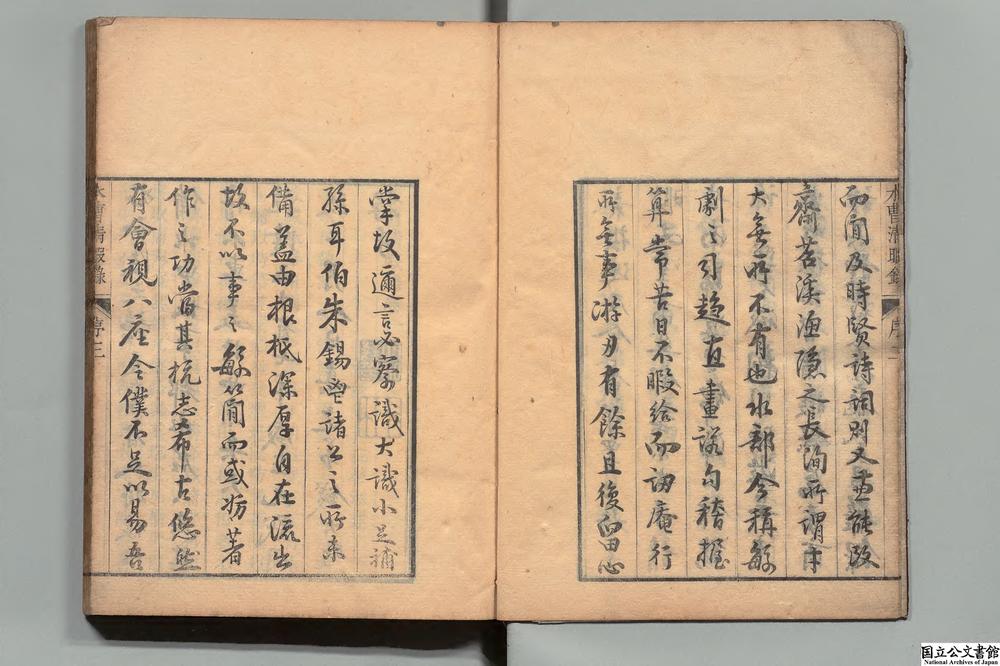 水曹清暇錄 序二
而間及時賢詩詞則又兼能改
齋苕溪漁隱之長洵所謂才
大無所不有也水部今稱繁
劇之司趨直畫諾勾稽握
算常苦日不暇給而訒庵行
所無事游刃有餘且復留心
掌故邇言必察識大識小足補
孫耳伯朱錫鬯諸公之所未
備蓋由根柢深厚自在流出
故不以事之繁簡而或妨著
作之功當其抗志希古悠然
有會視八座令僕不足以易吾
水曹清暇錄 序三
国立公文書館
National Archives of Japan